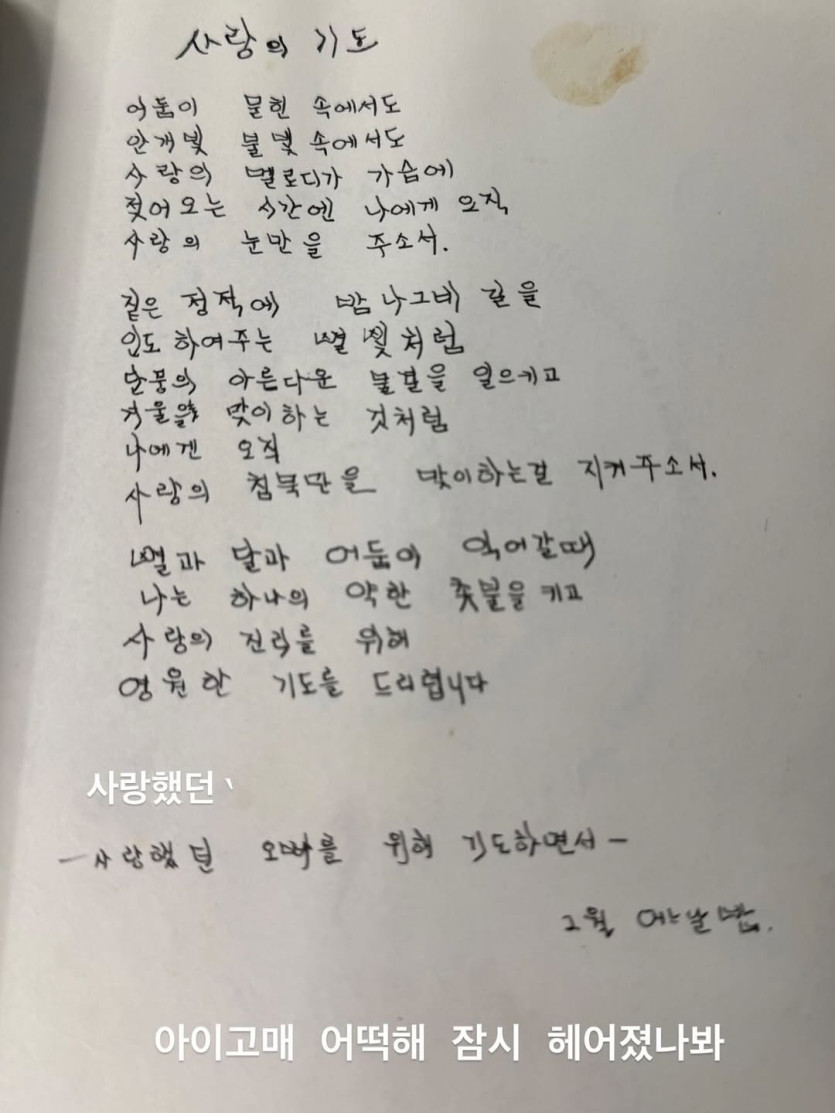 사랑의 기도
어둠이 물힌 속에서도
안개빛 불빛 속에서도
사랑의 멜로디가 가슴에
젖어오는 시간엔 나에게 오직
사랑의 눈만을 주소서.
짙은 정적에 밤 나그네 길을
인도 하여주는 별빛처럼
단풍의 아름다운 물결을 일으키고
겨울을 맞이하는 것처럼
나에겐 오직
사랑의 침묵만을 맞이하는걸 지켜주소서.
별과 달과 어둠이 익어갈때
나는 하나의 약한 촛불을 키고
사랑의 진리를 위해
영원한 기도를 드리렵니다
사랑했던
- 사랑했던 오빠를 위해 기도하면서 -
2월 어느날 밤.
아이고매 어떡해 잠시 헤어졌나봐